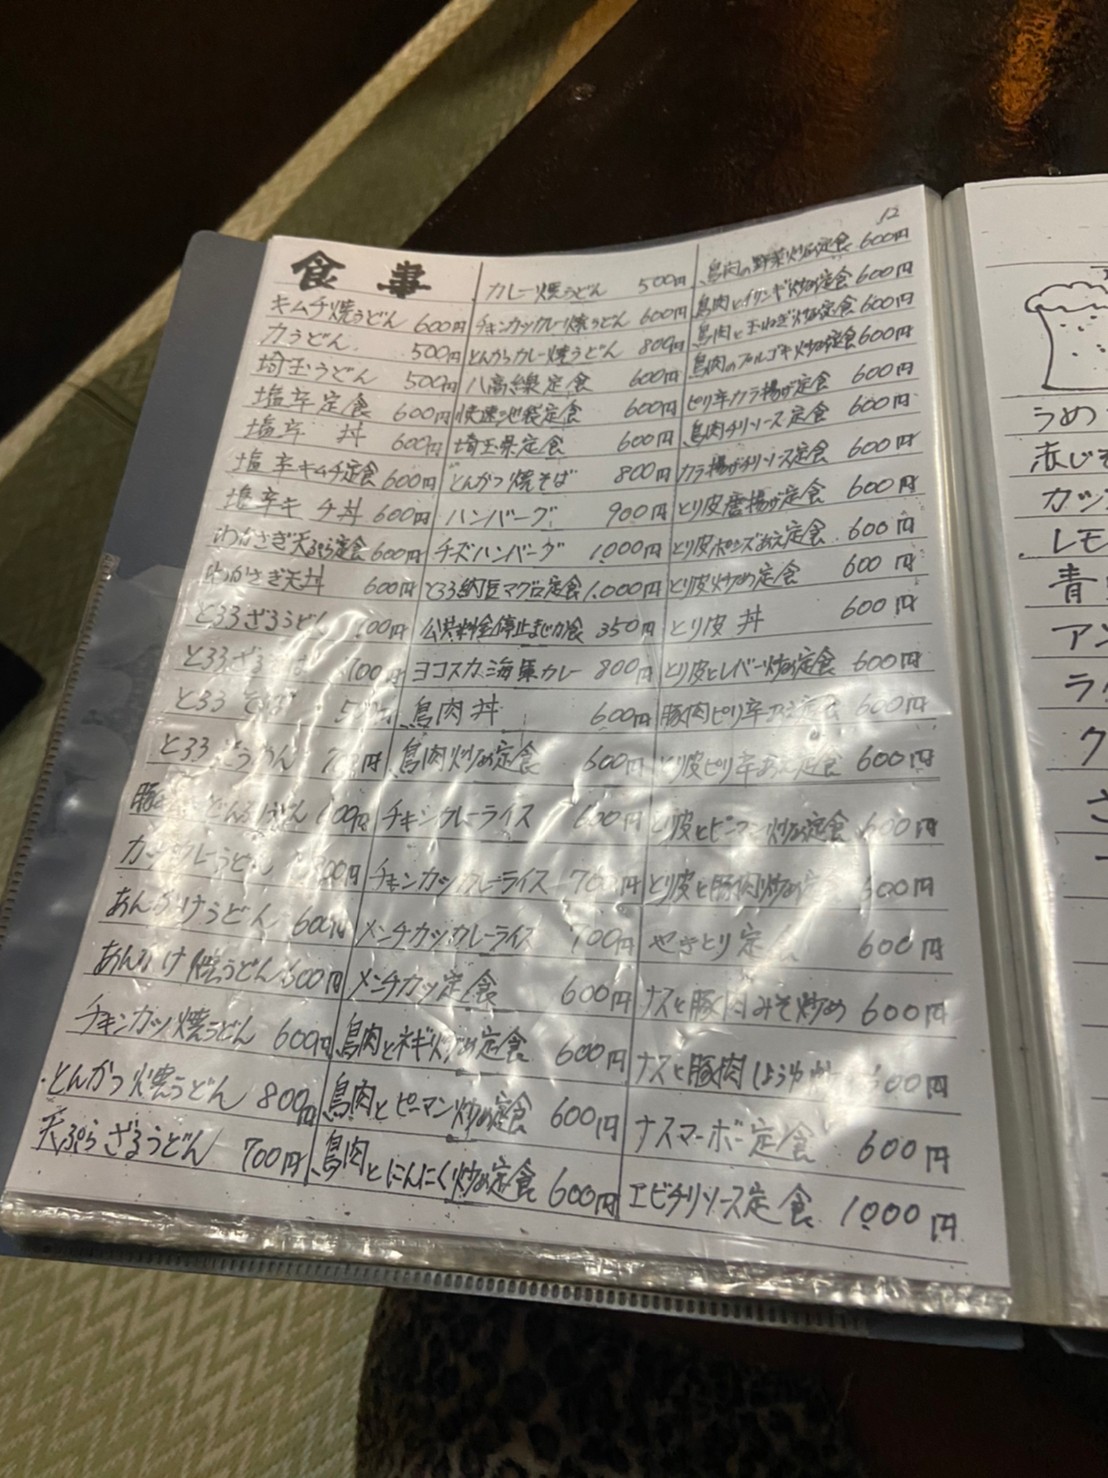 食事
キムチ焼うどん 600円
力うどん 500円
埼玉うどん 500円
塩辛定食 600円
塩辛丼 600円
塩辛キムチ定食 600円
塩辛キ チ丼 600円
わかさぎ天ぷら定食 600円
わかさぎ天丼 600円
とろろざるうどん 00円
とろろざる
とろろ
とろろ
豚
カツカレーうどん 00円
あんかけうどん 600円
あんかけ焼うどん 600円
チキンカツ焼うどん 600円
・とんかつ焼うどん 800円
天ぷらざるうどん 700円
カレー焼うどん 500円
チキンカツカレー焼うどん 600円
とんかつカレー焼うどん 800円
八高線定食 600円
快速池袋定食 600円
埼玉県定食 600円
とんかつ焼そば 800円
ハンバーグ 900円
チーズハンバーグ 1.000円
とろろ納豆マグロ定食 1.000円
公共料金停止まじか食 350円
ヨコスカ海軍カレー 800円
鳥肉丼 600円
鳥肉炒め定食 600円
チキンカレーライス 600円
チキンカツカレーライス 700円
メンチカツカレーライス 700円
メンチカツ定食 600円
鳥肉とネギ炒め定食 600円
鳥肉とピーマン炒め定食 600円
鳥肉とにんにく炒め定食 600円
12
鳥肉の野菜炒め定食 600円
鳥肉とインゲン炒め定食 600円
鳥肉と玉ねぎ炒め定食 600円
鳥肉のプルコギ炒め定食 600円
ピリ辛カラ揚げ定食 600円
鳥肉チリソース定食 600円
カラ揚げチリソース定食 600円
とり皮唐揚げ定食 600円
とり皮ポンズあえ定食 600円
とり皮炒め定食 600円
とり皮丼 600円
とり皮とレバー炒め定食 600円
豚肉ピリ辛 定食 600円
とり皮ピリ辛あえ定食 600円
とり皮とピーマン炒め定食 600円
とり皮と豚肉炒め 600円
やきとり定食 600円
ナスと豚肉みそ炒め 600円
ナスと豚肉しょうゆ炒 600円
ナスマーボー定食 600円
エビチリソース定食 1.000円
うめ
赤じそ
カッ
レモ
青
アン
ラ
ク